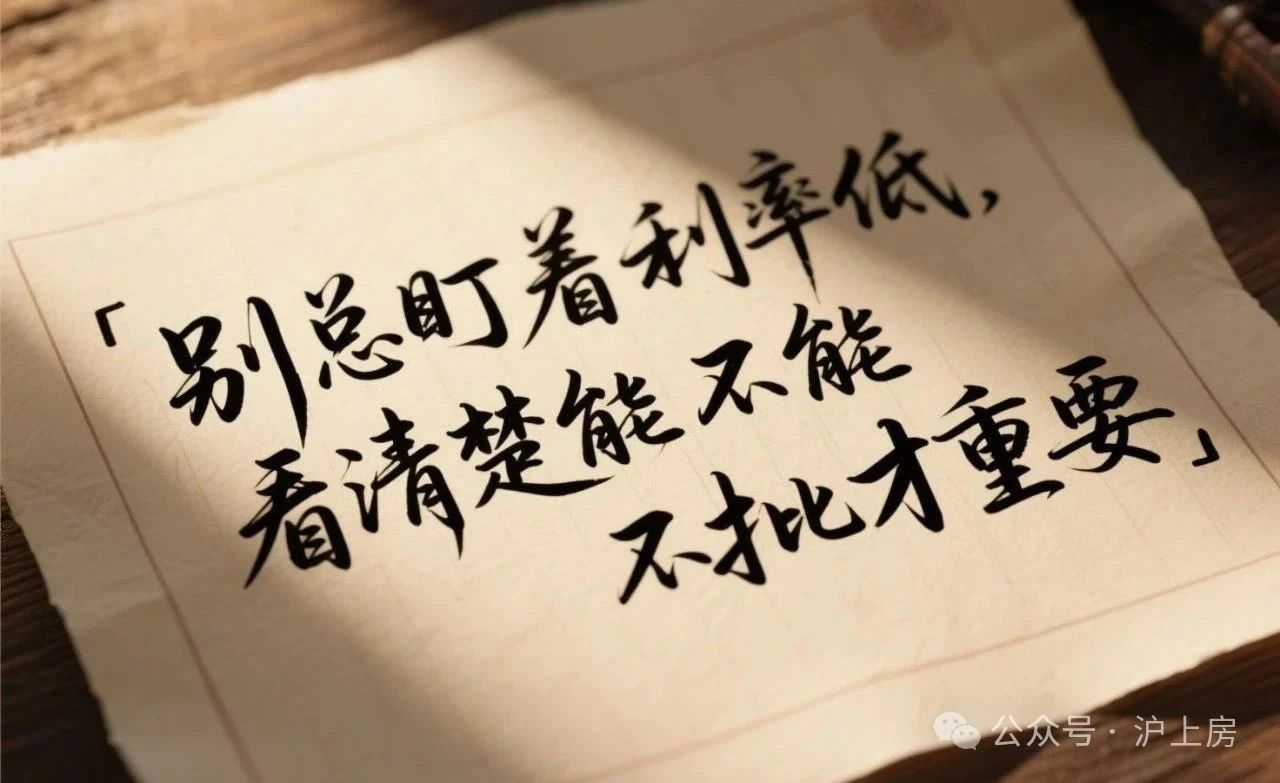 「别总盯着利率低，
看清楚能不能
不批才重要」
公众号·沪上房